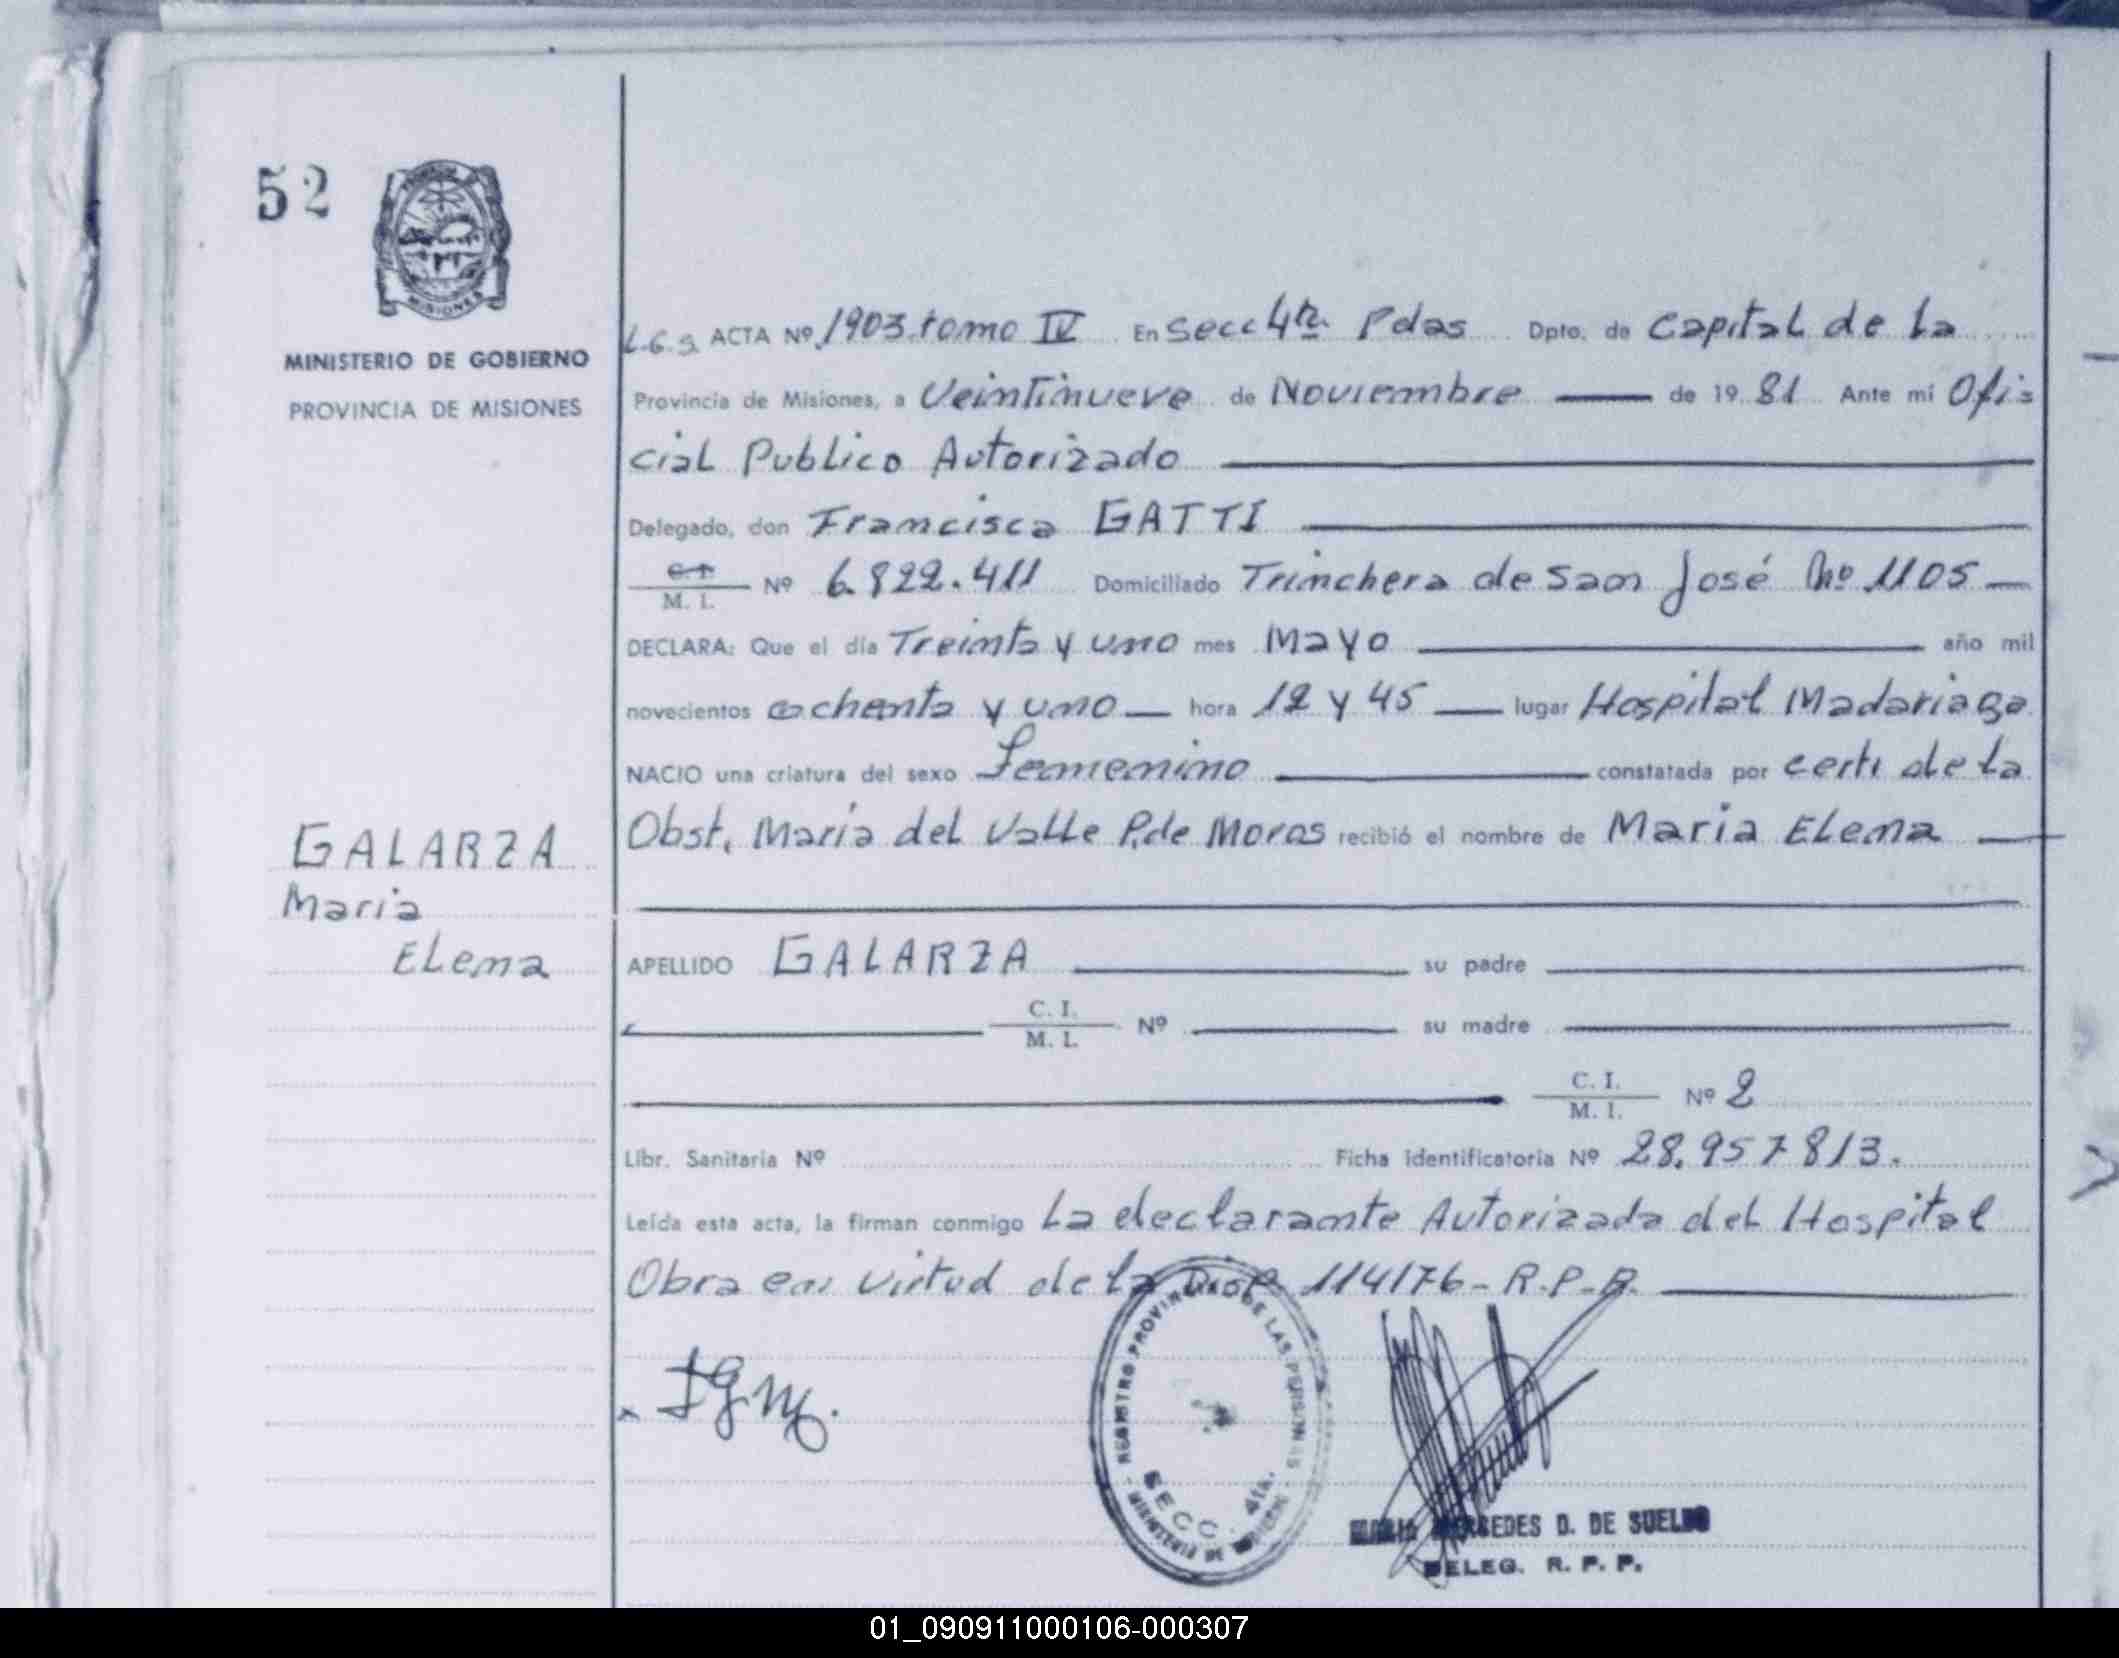 52
MISIONES
MINISTERIO DE GOBIERNO
PROVINCIA DE MISIONES
L.G.S. ACTA Nº 1903 tomo IV En Secc 4ta. Pdas Dpto. de Capital de La
Provincia de Misiones, a Veintinueve de Noviembre de 19 81 Ante mi Ofi=
cial Publico Autorizado
Delegado, don Francisca GATTI
C.I.
M. I. Nº 6.822.411 Domiciliado Trinchera de San José Nº 1105
DECLARA: Que el día Treinta y uno mes Mayo año mil
novecientos ochenta y uno hora 12 y 45 lugar Hospital Madariaga
NACIO una criatura del sexo Femenino constatada por certi de la
Obst. Maria del Valle P. de Moras recibió el nombre de Maria Elena
GALARZA
Maria
Elena
APELLIDO GALARZA su padre
C. I.
M. I. Nº su madre
C. I.
M. I. Nº 2
Libr. Sanitaria Nº Ficha identificatoria Nº 28.957813.
Leída esta acta, la firman conmigo La declarante Autorizada del Hospital
Obra en virtud de la Disp. 114/76-R.P.P.
REGISTRO PROVINCIAL DE LAS PERSONAS
SECC. 4ta.
MINISTERIO DE GOBIERNO
MARIA MERCEDES D. DE SUELDO
DELEG. R. P. P.
01_090911000106-000307